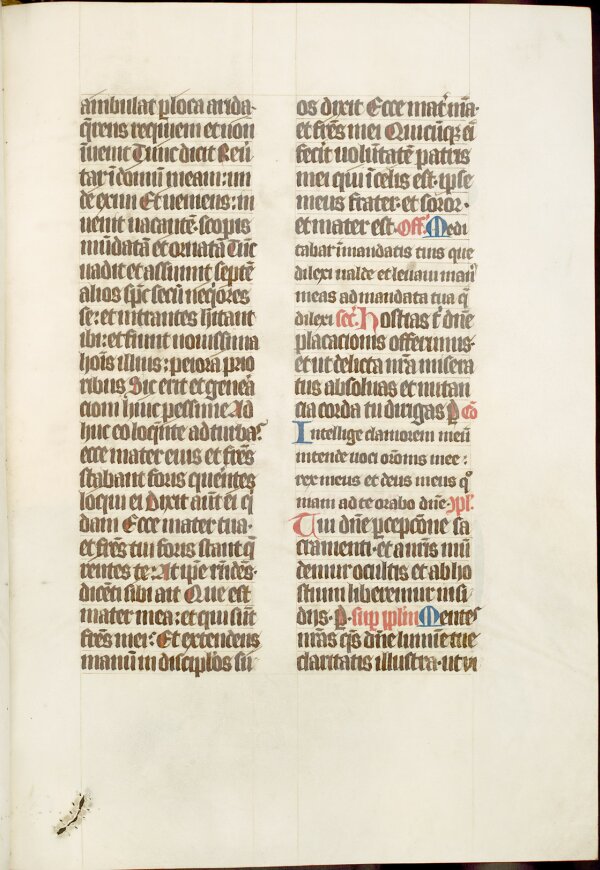 ambulat p loca arida·
q̄rens requiem et non
īuenit Tunc dicit Reū
tar ī domū meam: un
de exiui Et veniens: in
uenit uacantē· scopis
mūdatā et ornatā Tūc
uadit et assumit septē
alios sp̄c secū neq̄ores
se: et intrantes hītant
ibi: et fiunt nouissima
hoīs illius: peiora prio
ribus Sic erit et genea
cioni huic pessime Ad
huc eo loquēte ad turbas·
ecce mater eius et frēs
stabant foris querētes
loqui ei Dixit aūt ei q̄
dam Ecce mater tua·
et frēs tui foris stant q̄
rentes te: At ip̄e rn̄dēs·
dicēti sibi ait Que est
mater mea: et qui sūt
frēs mei: Et extendens
manū in discip̄los su
os dixit Ecce mat̄ m̄a·
et frēs mei Quicūq̄ ei
fecit uolūtatē patris
mei qui ī celis est· ipse
meus frater· et soror·
et mater est· Off̄· Medi
tabar ī mandatis tuis que
dilexi ualde et leuaui man᷒
meas ad mandata tua q̄
dilexi sec̄· Hostias t̄ dn̄e
placacionis offerimus·
et ut delicta nr̄a misera
tus absoluas et nutan
cia corda tu dirigas P cō
Intellige clamorem meū
intende uoci or̄onis mee:
rex meus et deus meus qͦ
niam ad te orabo dn̄e· 9pl̄·
Tui dn̄e p̄cepcōne sa
cramenti· et a nr̄is mū
demur ocultis et ab ho
stium liberemur insi
dijs· P· sup̄ pplm̄ Mentes
nr̄as q̄s dn̄e lumīe tue
claritatis illustra· ut vi